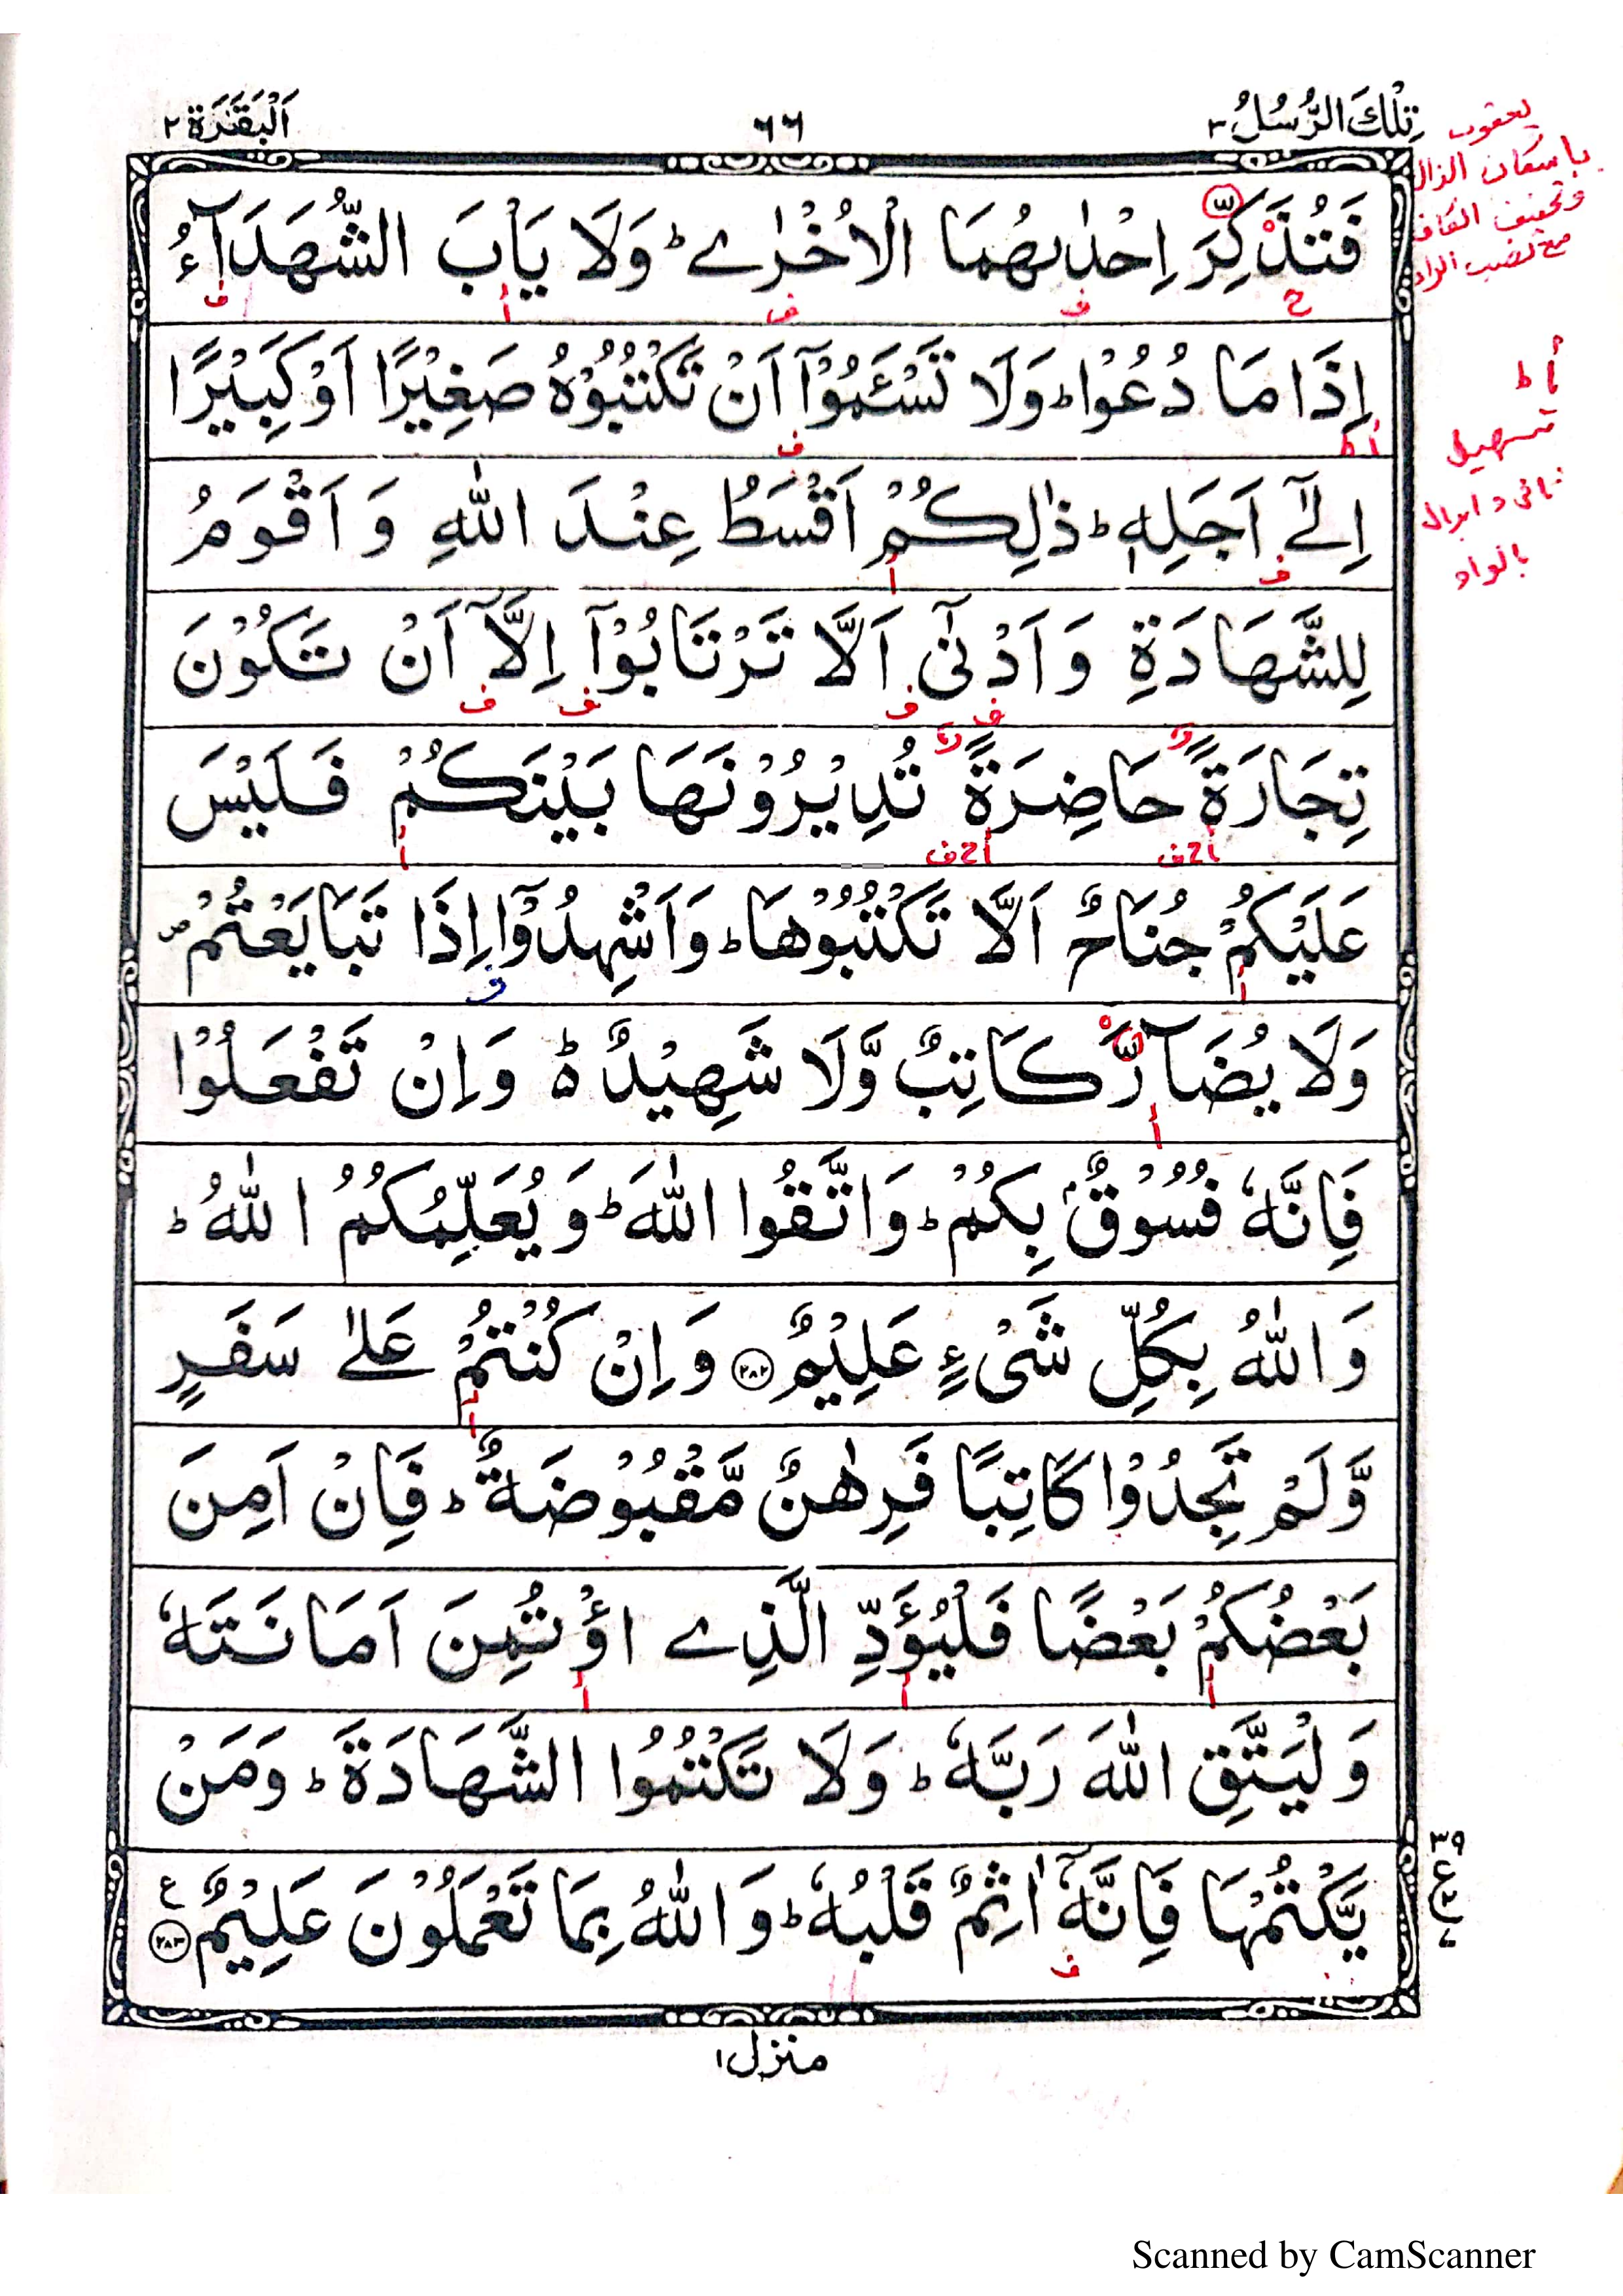 تِلْكَ الرُّسُلُ ٣
٦٦
اَلْبَقَرَة ٢
يعقوب
باسكان الذال
وتخفيف الكاف
مع نصب الراء
فَتُذَكِّرَ اِحْدٰىهُمَا الْاُخْرٰى ؕ وَلَا يَاْبَ الشُّهَدَآءُ
اِذَا مَا دُعُوْا ؕ وَلَا تَسْـَٔمُوْۤا اَنْ تَكْتُبُوْهُ صَغِيْرًا اَوْ كَبِيْرًا
تسهيل
بالواو
اِلٰٓى اَجَلِهٖ ؕ ذٰلِكُمْ اَقْسَطُ عِنْدَ اللّٰهِ وَ اَقْوَمُ
لِلشَّهَادَةِ وَ اَدْنٰٓى اَلَّا تَرْتَابُوْۤا اِلَّاۤ اَنْ تَكُوْنَ
تِجَارَةً حَاضِرَةً تُدِيْرُوْنَهَا بَيْنَكُمْ فَلَيْسَ
عَلَيْكُمْ جُنَاحٌ اَلَّا تَكْتُبُوْهَا ؕ وَ اَشْهِدُوْۤا اِذَا تَبَايَعْتُمْ ۪
وَلَا يُضَآرَّ كَاتِبٌ وَّلَا شَهِيْدٌ ؕ۬ وَ اِنْ تَفْعَلُوْا
فَاِنَّهٗ فُسُوْقٌۢ بِكُمْ ؕ وَاتَّقُوا اللّٰهَ ؕ وَ يُعَلِّمُكُمُ اللّٰهُ ؕ
وَ اللّٰهُ بِكُلِّ شَىْءٍ عَلِيْمٌ ﴿٢٨٢﴾ وَ اِنْ كُنْتُمْ عَلٰى سَفَرٍ
وَّلَمْ تَجِدُوْا كَاتِبًا فَرِهٰنٌ مَّقْبُوْضَةٌ ؕ فَاِنْ اَمِنَ
بَعْضُكُمْ بَعْضًا فَلْيُؤَدِّ الَّذِى اؤْتُمِنَ اَمَانَتَهٗ
وَلْيَتَّقِ اللّٰهَ رَبَّهٗ ؕ وَلَا تَكْتُمُوا الشَّهَادَةَ ؕ وَمَنْ
يَّكْتُمْهَا فَاِنَّهٗۤ اٰثِمٌ قَلْبُهٗ ؕ وَ اللّٰهُ بِمَا تَعْمَلُوْنَ عَلِيْمٌ ﴿٢٨٣﴾
٣٩
ع
منزل ١
Scanned by CamScanner